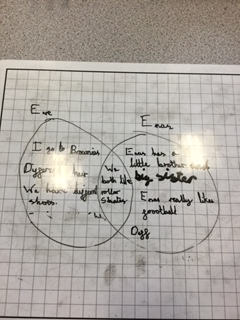 Eve
Enas
I go to Brownies
Different hair
We have different
shoes.
We
both like
roller
skates
Enas has a
little brother and
big sister
Enas really likes
football